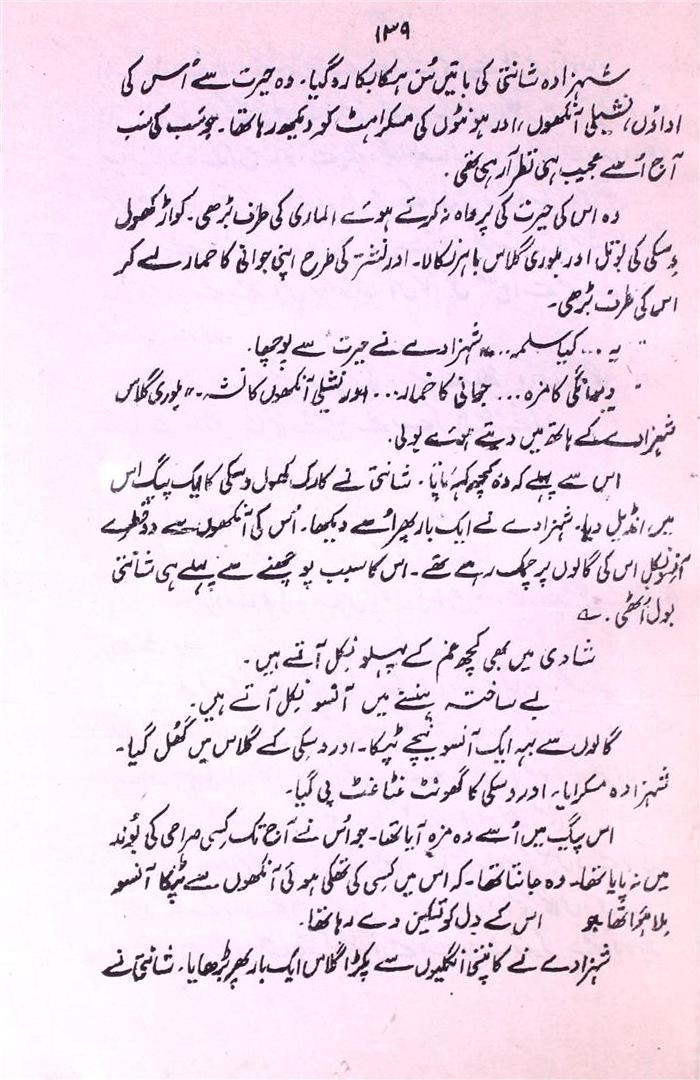 ۱۳۹
شہزادہ شانتی کی باتیں سُن ہکا بکا رہ گیا۔ وہ حیرت سے اُس کی
اداؤں، نشیلی آنکھوں، اور ہونٹوں کی مسکراہٹ کو دیکھ رہا تھا۔ جو سب کی سب
آج اُسے عجیب ہی نظر آ رہی تھی۔
وہ اس کی حیرت کی پرواہ نہ کرتے ہوئے الماری کی طرف بڑھی۔ کواڑ کھول
وسکی کی بوتل اور بلوری گلاس باہر نکالا۔ اور نشتر کی طرح اپنی جوانی کا خمار لے کر
اس کی طرف بڑھی۔
"یہ ۔۔۔ کیا سلمہ ۔۔۔" شہزادے نے حیرت سے پوچھا۔
"دیوانگی کا مزہ ۔۔۔ جوانی کا خمار ۔۔۔ اور نشیلی آنکھوں کا نشہ۔" بلوری گلاس
شہزادے کے ہاتھ میں دیتے ہوئے بولی۔
اس سے پہلے کہ وہ کچھ کہہ پاتا۔ شانتی نے کارک کھول وسکی کا ایک پیگ اس
میں انڈیل دیا۔ شہزادے نے ایک بار پھر اُسے دیکھا۔ اُس کی آنکھوں سے دو قطرے
آنسو نکل اس کی گالوں پر چمک رہے تھے۔ اس کا سبب پوچھنے سے پہلے ہی شانتی
بول اُٹھی۔ ؎
شادی میں بھی کچھ غم کے پہلو نکل آتے ہیں۔
بے ساختہ ہنسنے میں آنسو نکل آتے ہیں۔
گالوں سے بہہ ایک آنسو نیچے ٹپکا۔ اور وسکی کے گلاس میں گھُل گیا۔
شہزادہ مسکرایا۔ اور وسکی کا گھونٹ غٹا غٹ پی گیا۔
اس پیگ میں اُسے وہ مزہ آیا تھا۔ جو اُس نے آج تک کسی صراحی کی بُوند
میں نہ پایا تھا۔ وہ جانتا تھا۔ کہ اس میں کسی کی تھکی ہوئی آنکھوں سے ٹپکا آنسو
ملا ہُوا تھا جو اس کے دِل کو تسکین دے رہا تھا۔
شہزادے نے کانپتی انگلیوں سے پکڑا گلاس ایک بار پھر بڑھایا۔ شانتی نے